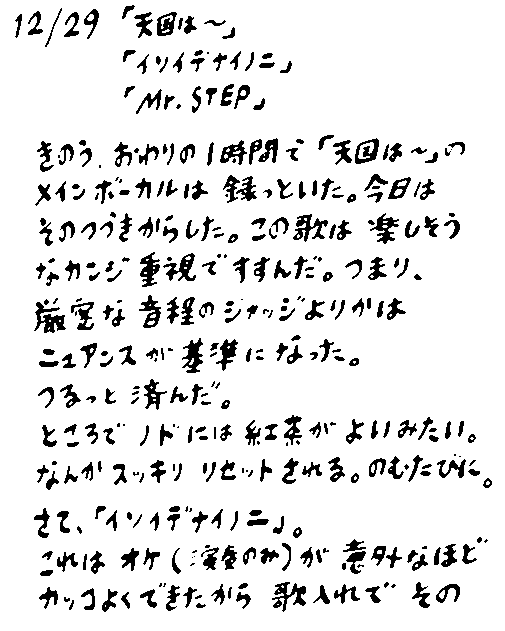 12/29 「天国は〜」
「イソイデナイノニ」
「Mr. STEP」
きのう、おわりの1時間で「天国は〜」の
メインボーカルは録っといた。今日は
そのつづきからした。この歌は楽しそう
なカンジ重視ですすんだ。つまり、
厳密な音程のジャッジよりかは
ニュアンスが基準になった。
つるっと済んだ。
ところでノドには紅茶がよいみたい。
なんかスッキリリセットされる。のむたびに。
さて、「イソイデナイノニ」。
これはオケ(演奏のみ)が意外なほど
カッコよくできたから歌入れでその